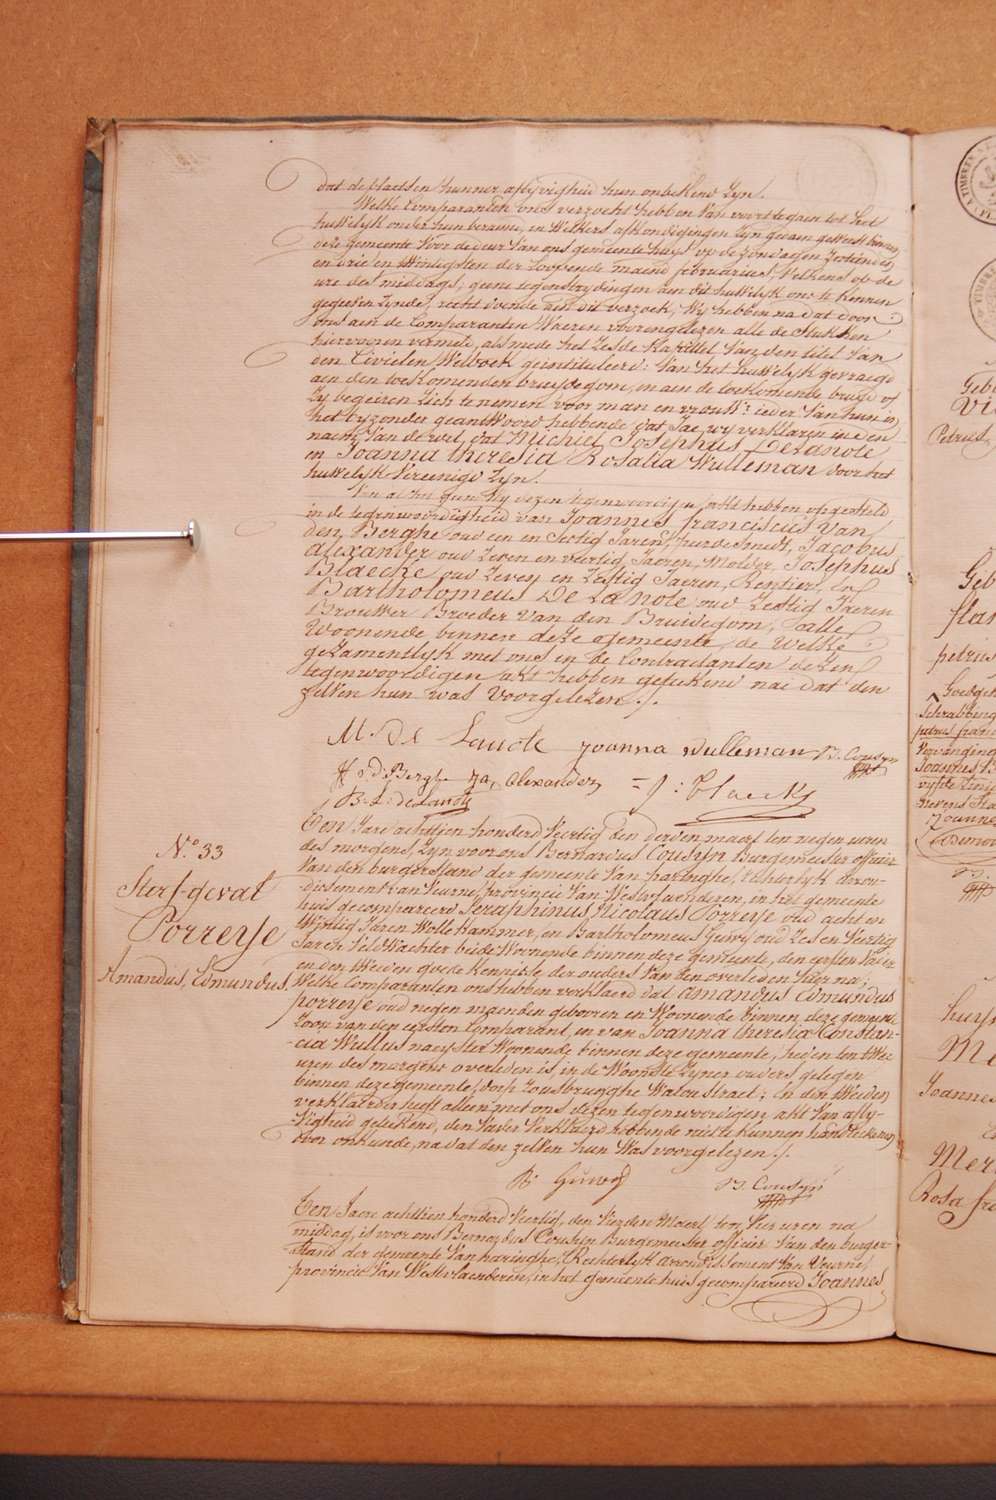 dat de plaetsen hunner aflyvigheid hun onbekend zyn.
Welke Comparanten ons verzocht hebben van voorts te gaen tot het
huwelyk onder hun beraemd, en welkers afkondigingen zyn gedaen geweest binnen
deze gemeente voor de deur van ons gemeente huys op de zondagen zestienden
en drie en twintigsten der loopende maend februarius, telkens op de
ure des middags, geene tegenstrydingen aen dit huwelyk ons te kennen
gegeven zynde, recht doende aen dit verzoek, Wy hebben na dat door
ons aen de Comparanten waeren voorengelezen alle de stukken
hiervooren vermeld, als mede het zesde Kapittel van den titel van
den Civielen Wetboek geintituleerd: Van het huwelyk gevraegd
aen den toekomenden bruydegom, en aen de toekomende bruyd of
zy begeiren zich te nemen voor man en vrouw: ieder van hun in
het byzonder geantwoord hebbende dat Jae, wy verklaren in den
naem van de wet, dat Michiel Josephus De Lanote
en Joanna theresia Rosalia Wulleman door het
huwelyk vereenigd zyn.
Van al het gun wy dezen tegenwoordigen akt hebben opgesteld
in de tegenwoordigheid van Joannes franciscus Van
den Berghe oud een en sestig Jaren, peerdesmedt, Jacobus
Alexander oud zeven en veertig Jaeren, Molder, Josephus
Blaecke oud zeven en zestig Jaeren, Rentier, en
Bartholomeus De Lanote oud zestig Jaeren
Brouwer Broeder van den Bruidegom, alle
Woonende binnen deze gemeente, de welke
gezamentlyk met ons en de Contractanten dezen
tegenwoordigen akt hebben geteekend nae dat den
zelven hun was voorgelezen ./.
M. De Lanote Joanna wulleman B. Cousyn
J f v.d. Berghe Ja, Alexander = J : Blaecke
B. L. de Lanote
N.° 33
Sterf-geval
Porreye
Amandus, Edmundus.
Een Jare achttien honderd veertig den derden maert ten negen uren
des morgens, zyn voor ons Bernardus Cousyn Burgemeester officier
van den burgerstand der gemeente van haringhe, rechterlyk arron-
dissement van veurne, provincie van Westvlaenderen, in het gemeente
huis gecompareerd Seraphinus Nicolaus Porreye oud acht en
twintig Jaren Wolle Kammer, en Bartholomeus Guwy oud zes en veertig
Jaren veldwachter beide woonende binnen deze gemeente, den eersten vader
en den tweeden goede kennisse der ouders van den overleden hier na;
Welke Comparanten ons hebben verklaerd dat Amandus Edmundus
porreye oud negen maenden geboren en Woonende binnen deze gemeente
Zoon van den eersten Comparant, en van Joanna theresia Constan-
cia Wullus naeyster Woonende binnen deze gemeente, heden ten twee
uren des morgens overleden is, in de Woonste zyner ouders gelegen
binnen deze gemeente, dorp Rousbrugghe Watou straet; En den tweeden
verklaerder heeft alleen met ons dezen tegenwoordigen akt van afly-
vigheid geteekend, den vader verklaerd hebbende niet te kunnen handteekenen
door onkunde, na dat den zelven hun was voorgelezen ./.
B: Guwy B. Cousyn
Een Jaere achttien honderd veertig, den vierden Maert ten vier uren na
middag, is voor ons Bernardus Cousyn Burgemeester officier van den burger-
stand der gemeente van haringhe, Rechterlyk arrondissement van Veurne,
provincie van Westvlaenderen, in het gemeente huis gecompareerd Joannes